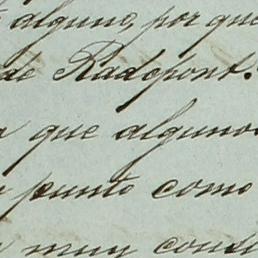 alguno, por que
de Radepont.
que algunos
punto como
muy cond